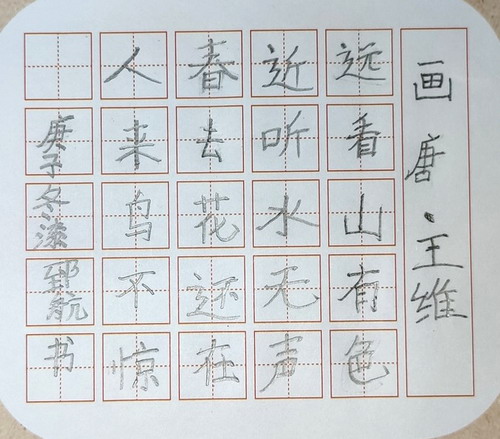 画 唐·王维
远看山有色
近听水无声
春去花还在
人来鸟不惊
庚子冬漆郅航书